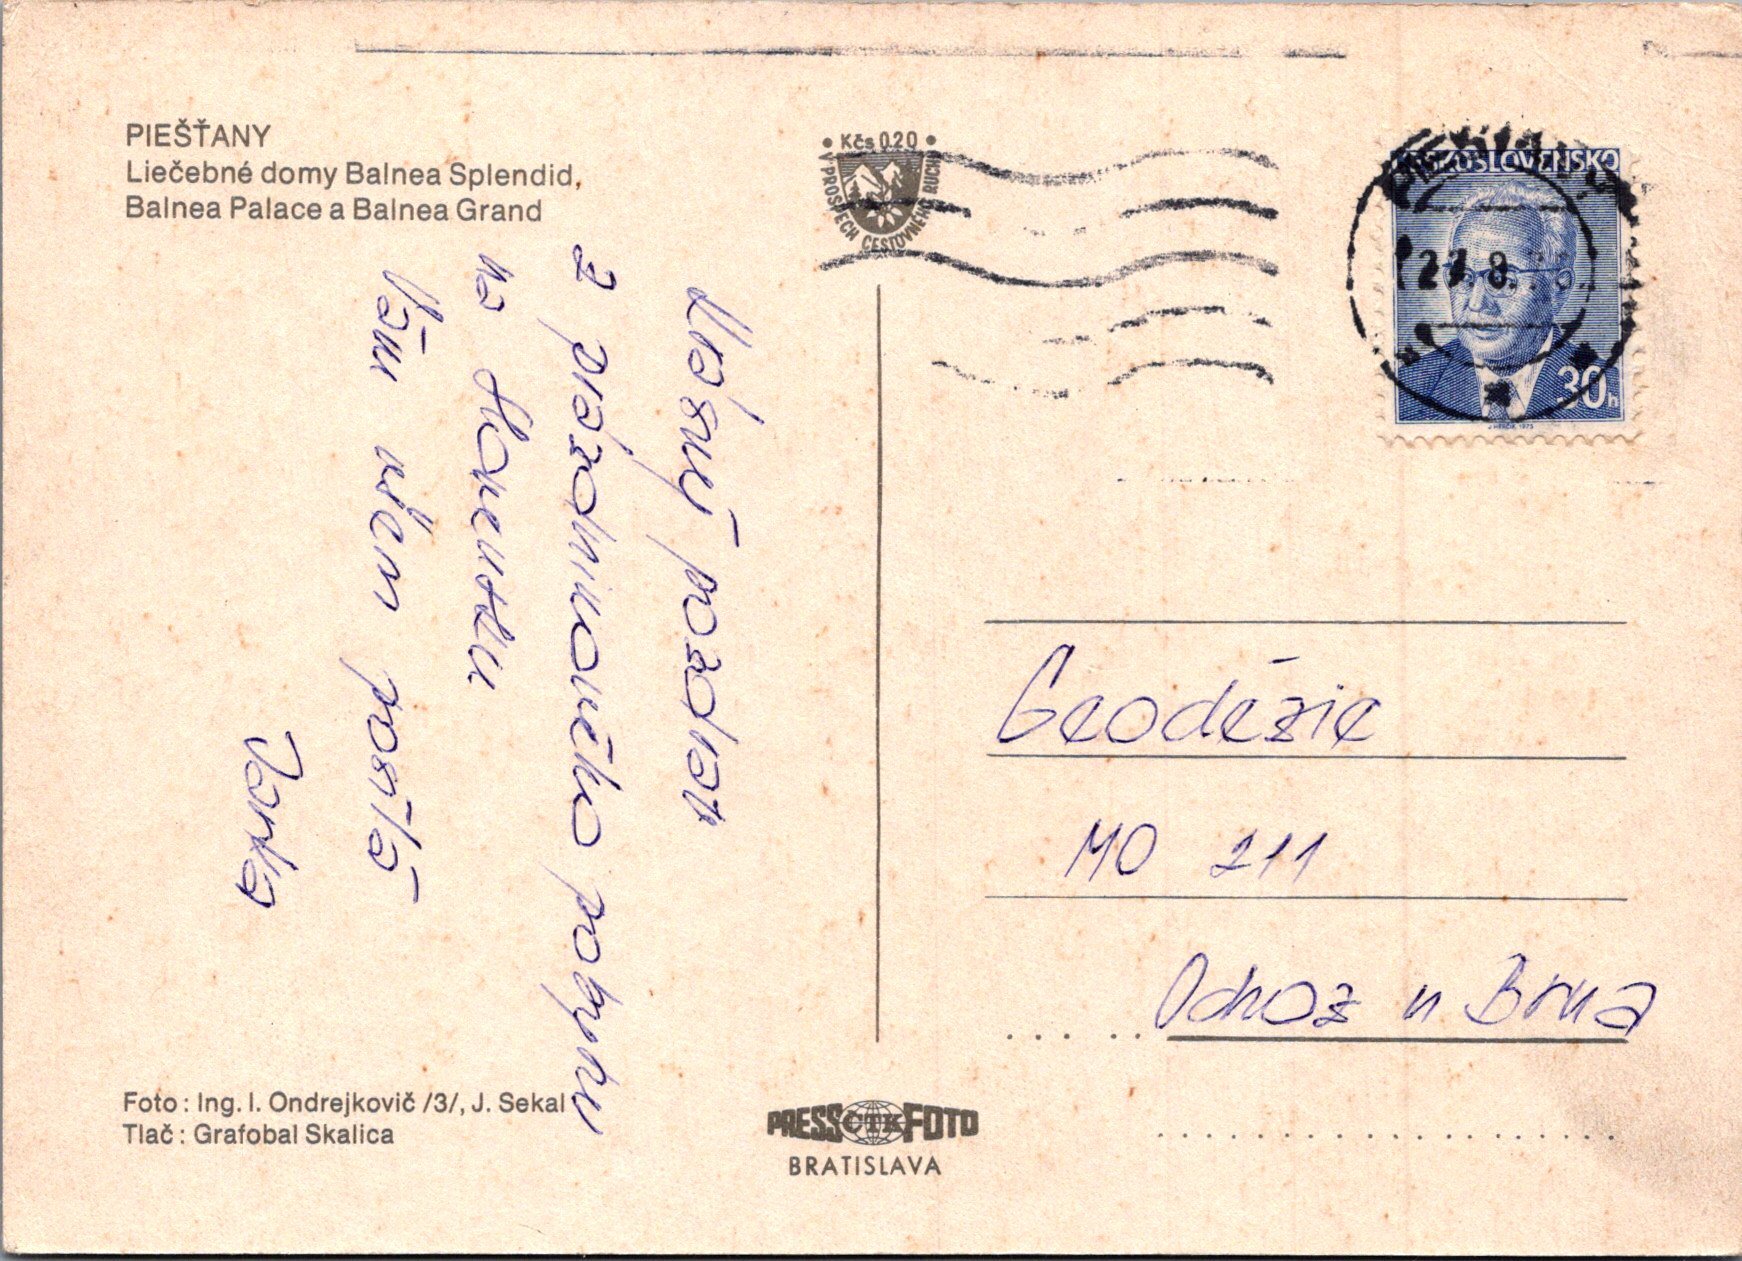 PIEŠŤANY
Liečebné domy Balnea Splendid,
Balnea Palace a Balnea Grand
• Kčs 0.20 •
V PROSPECH CESTOVNÉHO RUCHU
ČESKOSLOVENSKO
27.8.
30h
J. HERČÍK 1975
Krásný pozdrav
z prázdninového pobytu
na Slovensku
Vám všem posílá
Jarka
Geodézie
MO 211
Ochoz u Brna
Foto: Ing. I. Ondrejkovič /3/, J. Sekal
Tlač: Grafobal Skalica
PRESS ČTK FOTO
BRATISLAVA